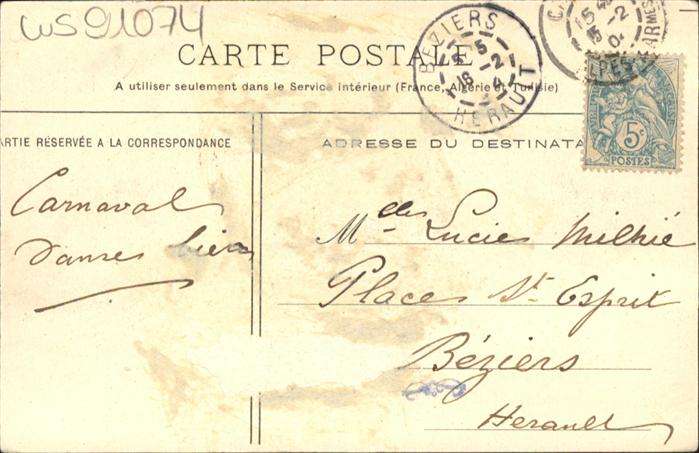 CWS91074
CARTE POSTALE
A utiliser seulement dans le Service intérieur (France, Algérie et Tunisie)
BÉZIERS
5
16 -2
4
HERAULT
15
15 -2
5c
POSTES
PARTIE RÉSERVÉE A LA CORRESPONDANCE
ADRESSE DU DESTINATA
Carnaval
danses bien
Melle Lucie Milhié
Place St Esprit
Béziers
Herault